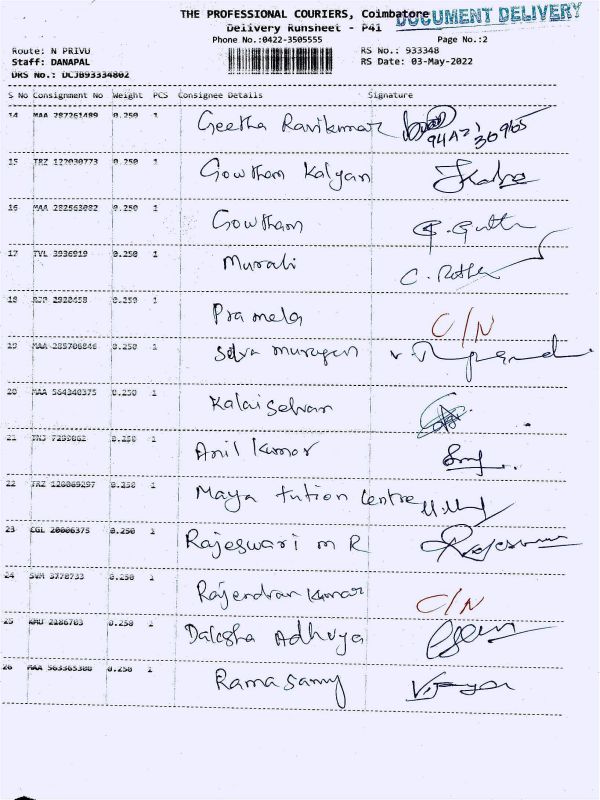 THE PROFESSIONAL COURIERS, Coimbatore
DOCUMENT DELIVERY
Delivery Runsheet - P41
Phone No.:0422-3505555 Page No.:2
Route: N PRIVU RS No.: 933348
Staff: DANAPAL RS Date: 03-May-2022
DRS No.: DCJB93334802
S No Consignment No Weight PCS Consignee Details Signature
14 MAA 287261489 0.250 1 Geetha Ravikumar
15 TRZ 122030773 0.250 1 Gowtham Kalyan
16 MAA 282563082 0.250 1 Gowtham
17 TVL 3936919 0.250 1 Murali
18 2928458 0.250 1 Pramela C/N
19 MAA 285706846 0.250 1 Selva murugan
20 MAA 564340375 0.250 1 Kalai selvan
21 0.250 1 Anil Kumar
22 TRZ 0.250 1 Maya tution Centre
23 CGL 20006375 0.250 1 Rajeswari M R
24 SVM 3778733 0.250 1 Rajendran Kumar C/N
25 2186703 0.250 1 Dalesha Adhvya
26 MAA 563365388 0.250 1 Ramasamy